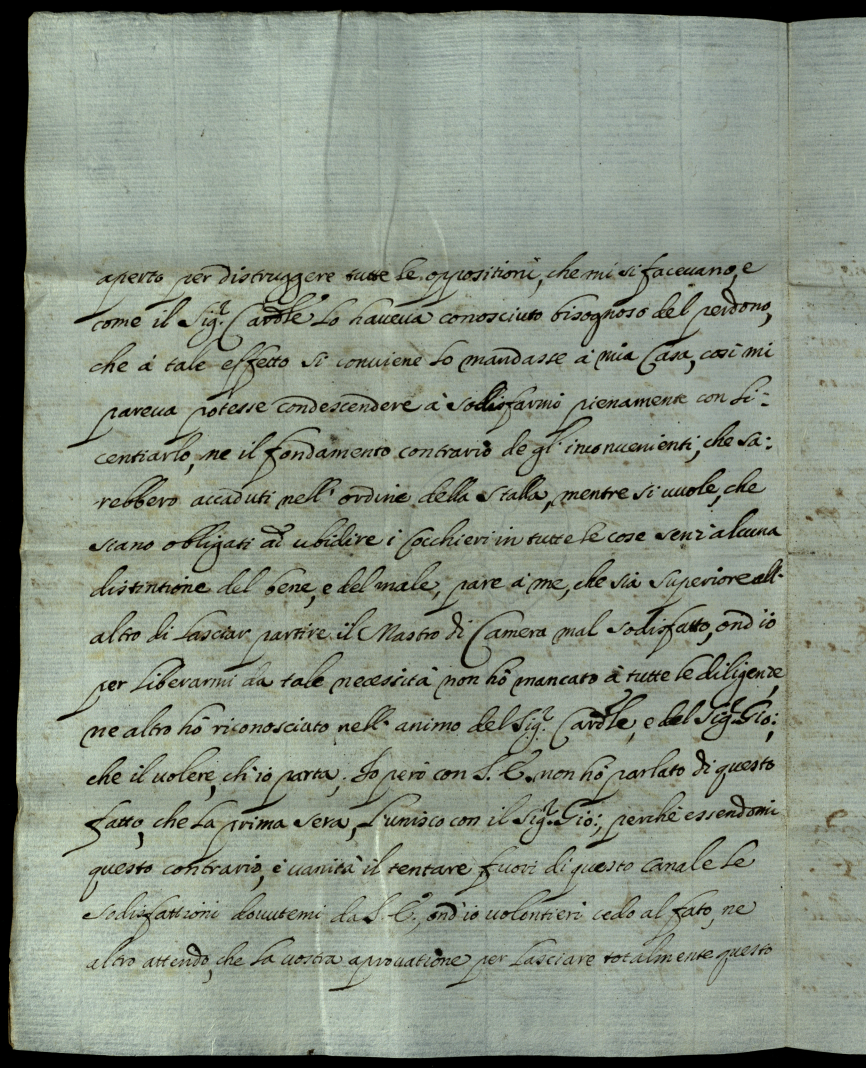 aperto per distruggere tutte le oppositioni, che mi si facevano, e
come il Sig.r Card.le lo haveva conosciuto bisognoso del perdono,
che à tale effetto si conviene lo mandasse à mia Casa, così mi
pareva potesse condescendere à sodisfarmi pienamente con li=
centiarlo, ne il fondamento contrario de gl' inconvenienti, che sa=
rebbero accaduti nell' ordine della stalla, mentre si vuole, che
siano obligati ad ubidire i Cocchieri in tutte le cose senz' alcuna
distintione del bene, e del male, pare à me, che sia superiore all'
altro di lasciar partire il Mastro di Camera mal sodisfatto, ond' io
per liberarmi da tale necessità non hò mancato à tutte le diligenze,
ne altro hò riconosciuto nell' animo del Sig.r Card.le, e del Sig.r Gio:,
che il volere, ch' io parta. Io però con S. E. non hò parlato di questo
fatto, che la prima sera, con il Sig.r Gio:, perche essendomi
questo contrario, è vanità il tentare fuori di questo canale le
sodisfattioni dovutemi da S. E., ond' io volontieri cedo al fato, ne
altro attendo, che la vostra aprovatione per lasciare totalmente questo